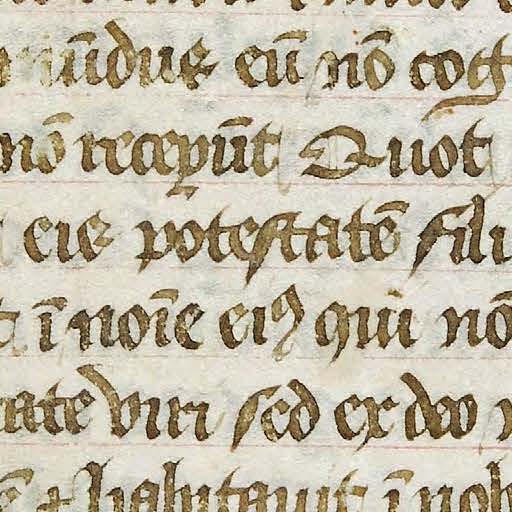 mūdus eū nō cog
nō receꝑūt Quot
eis potestatē fili
ī noīe eiꝰ qui nō
tate viri sed ex deo
⁊ habitauit ī nob